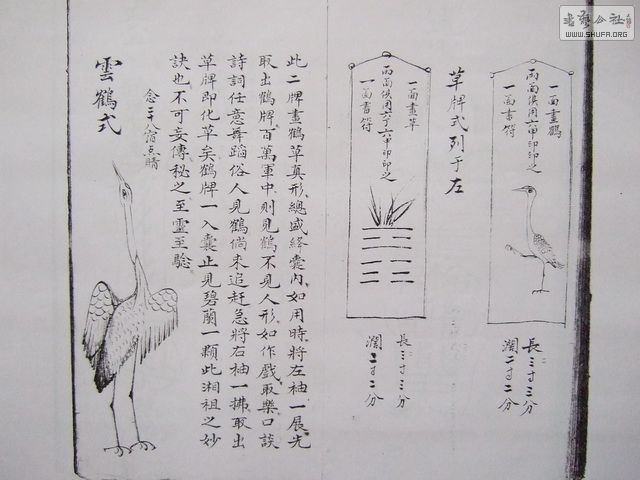 一面畫鶴
兩面俱用六甲印印之
一面書符
長三寸三分
濶二寸二分
草牌式列于左
一面畫草
兩面俱用六丁六甲印印之
一面書符
長三寸三分
濶二寸二分
此二牌畫鶴草真形總盛絳囊內如用時將左袖一展先
取出鶴牌百萬軍中則見鶴不見人形如作戲取樂口談
詩詞任意舞蹈俗人見鶴倘來追赶急將右袖一拂取出
草牌即化草矣鶴牌一入囊止見碧蘭一顆此湘祖之妙
訣也不可妄傳秘之至靈至驗
念二十八宿点睛
雲鶴式
書藝公社
WWW.SHUFA.ORG